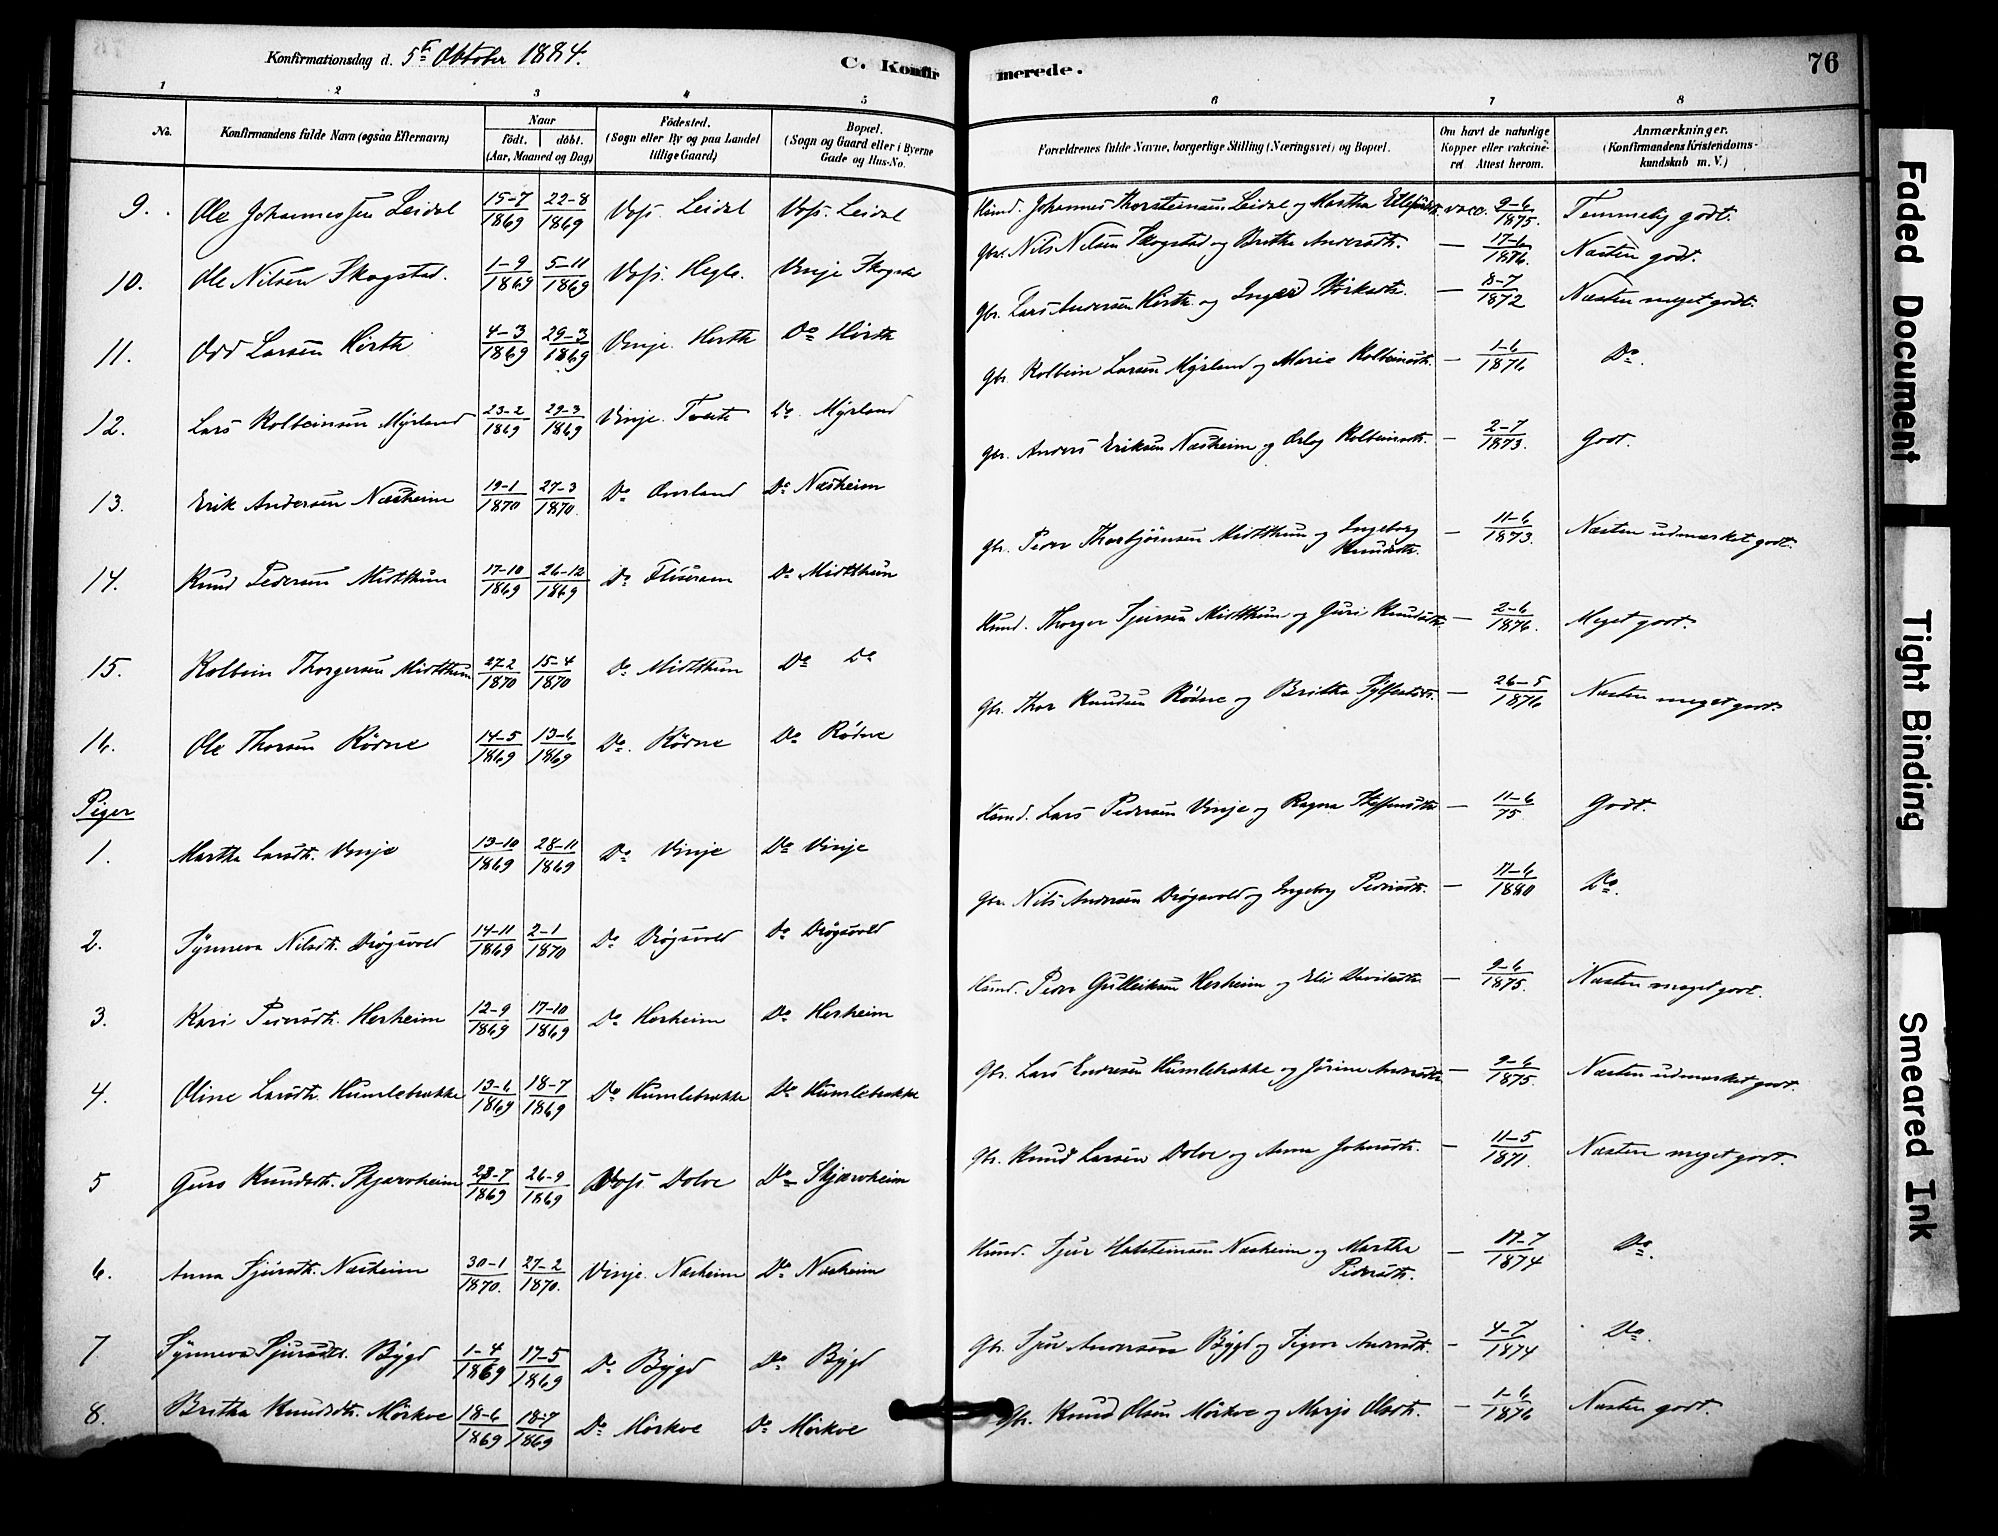 Konfirmationsdag d. 5te Oktober 1884.
C. Konfir
merede.
76
1 2 3 4 5 6 7 8
No.
Konfirmandens fulde Navn (ogsaa Efternavn)
Naar
födt. döbt.
(Aar, Maaned og Dag)
Födested.
(Sogn eller By og paa Landet
tillige Gaard)
Bopæl.
(Sogn og Gaard eller i Byerne
Gade og Hus-No.
Forældrenes fulde Navne, borgerlige Stilling (Næringsvei) og Bopæl.
Om havt de naturlige
Kopper eller vakcine-
ret Attest herom.
Anmærkninger.
(Konfirmandens Kristendoms-
kundskab m. V.)
9. Ole Johannessen Leidal 15-7 1869 22-8 1869 Voss. Leidal Voss. Leidal Huusmd. Johannes Thorsteinsen Leidal og Martha vacc. 9-6 1875. Temmelig godt.
10. Ole Nilsen Skogstad. 1-9 1869 5-11 1869 Voss. Hegle. Vinje Skogsta Gbr. Nils Nilsen Skogstad og Britha Andersdtr. — 17-6 1876. Næsten godt.
11. Odd Larsen Hirth 4-3 1869 29-3 1869 Vinje. Hirth Do Hirth Gbr. Lars Andersen Hirth og Inger — 8-7 1872 Næsten meget godt.
12. Lars Kolbeinsen Myrland 23-2 1869 29-3 1869 Vinje. Tveite Do. Myrland Gbr. Kolbein Larsen Myrland og Maria Kolbeinsdtr. — 1-6 1876 Do.
13. Erik Andersen Næsheim 19-1 1870 27-3 1870. Do Øvsland Do Næsheim Gbr. Anders Eriksen Næsheim og Kolbeinsdtr. — 2-7 1873. Godt.
14. Knud Pedersen Midtthun 17-10 1869 26-12 1869 Do Flisram Do Midtthun Gbr. Peder Thorbjørnsen Midtthun og Ingeborg Knudsdtr. — 11-6 1873. Næsten udmærket godt.
15. Kolbein Thorgersen Midtthun 27-2 1870 15-4 1870 Do Midtthun Do Do Husmd. Thorger Sjursen Midtthun og Guri Knudsdtr. — 2-6 1876. Meget godt.
16. Ole Thorsen Rødne 14-5 1869 13-6 1869 Do. Rødne Do Rødne Gbr. Thor Knudsen Rødne og Britha — 26-5 1876 Næsten meget godt.
Piger
1. Martha Larsdtr. Vinje 13-10 1869 28-11 1869 Do Vinje Do Vinje Husmd. Lars Pedersen Vinje og Ragna Steffensdtr. — 11-6 75 Godt.
2. Synneva Nilsdtr. Drøgsvold 14-11 1869 2-1 1870 Do Drøgsvold Do Drøgsvold Gbr. Nils Andersen Drøgsvold og Ingeborg Pedersdtr. — 11-6 1880 Do.
3. Kari Pedersdtr. Herheim 12-9 1869 17-10 1869 Do Herheim Do Herheim Husmd. Peder Gulleiksen Herheim og Eli Davidsdtr. — 9-6 1875. Næsten meget godt.
4. Oline Larsdtr. Humlebrække 13-6 1869 18-7 1869 Do Humlebrække Do Humlebrække Gbr. Lars Endresen Humlebrække og Jørine Andersdtr. — 9-6 1875. Næsten udmærket godt.
5 Guro Knudsdtr. Skjærvheim 23-7 1869 26-9 1869 Voss. Dolve Do Skjærvheim Gbr. Knud Larsen Dolve og Anna Johnsdtr. — 11-5 1871. Næsten meget godt.
6. Anna Sjursdtr. Næsheim 30-1 1870. 27-2 1870. Vinje. Næsheim Do Næsheim Husmd. Sjur Halsteinsen Næsheim og Martha Pedersdtr. — 11-7 1874 Do.
7. Synneva Sjursdtr. Bygd 1-4 1869 17-5 1869 Do Bygd Do Bygd Gbr. Sjur Andersen Bygd og Andersdtr. — 4-7 1874 Do.
8. Britha Knudsdtr. Mørkve 18-6 1869 18-7 1869 Do Mørkve Do Mørkve Gbr. Knud Olsen Mørkve og Marja Olsdtr. — 1-6 1876 Næsten godt.
Faded Document
Tight Binding
Smeared Ink